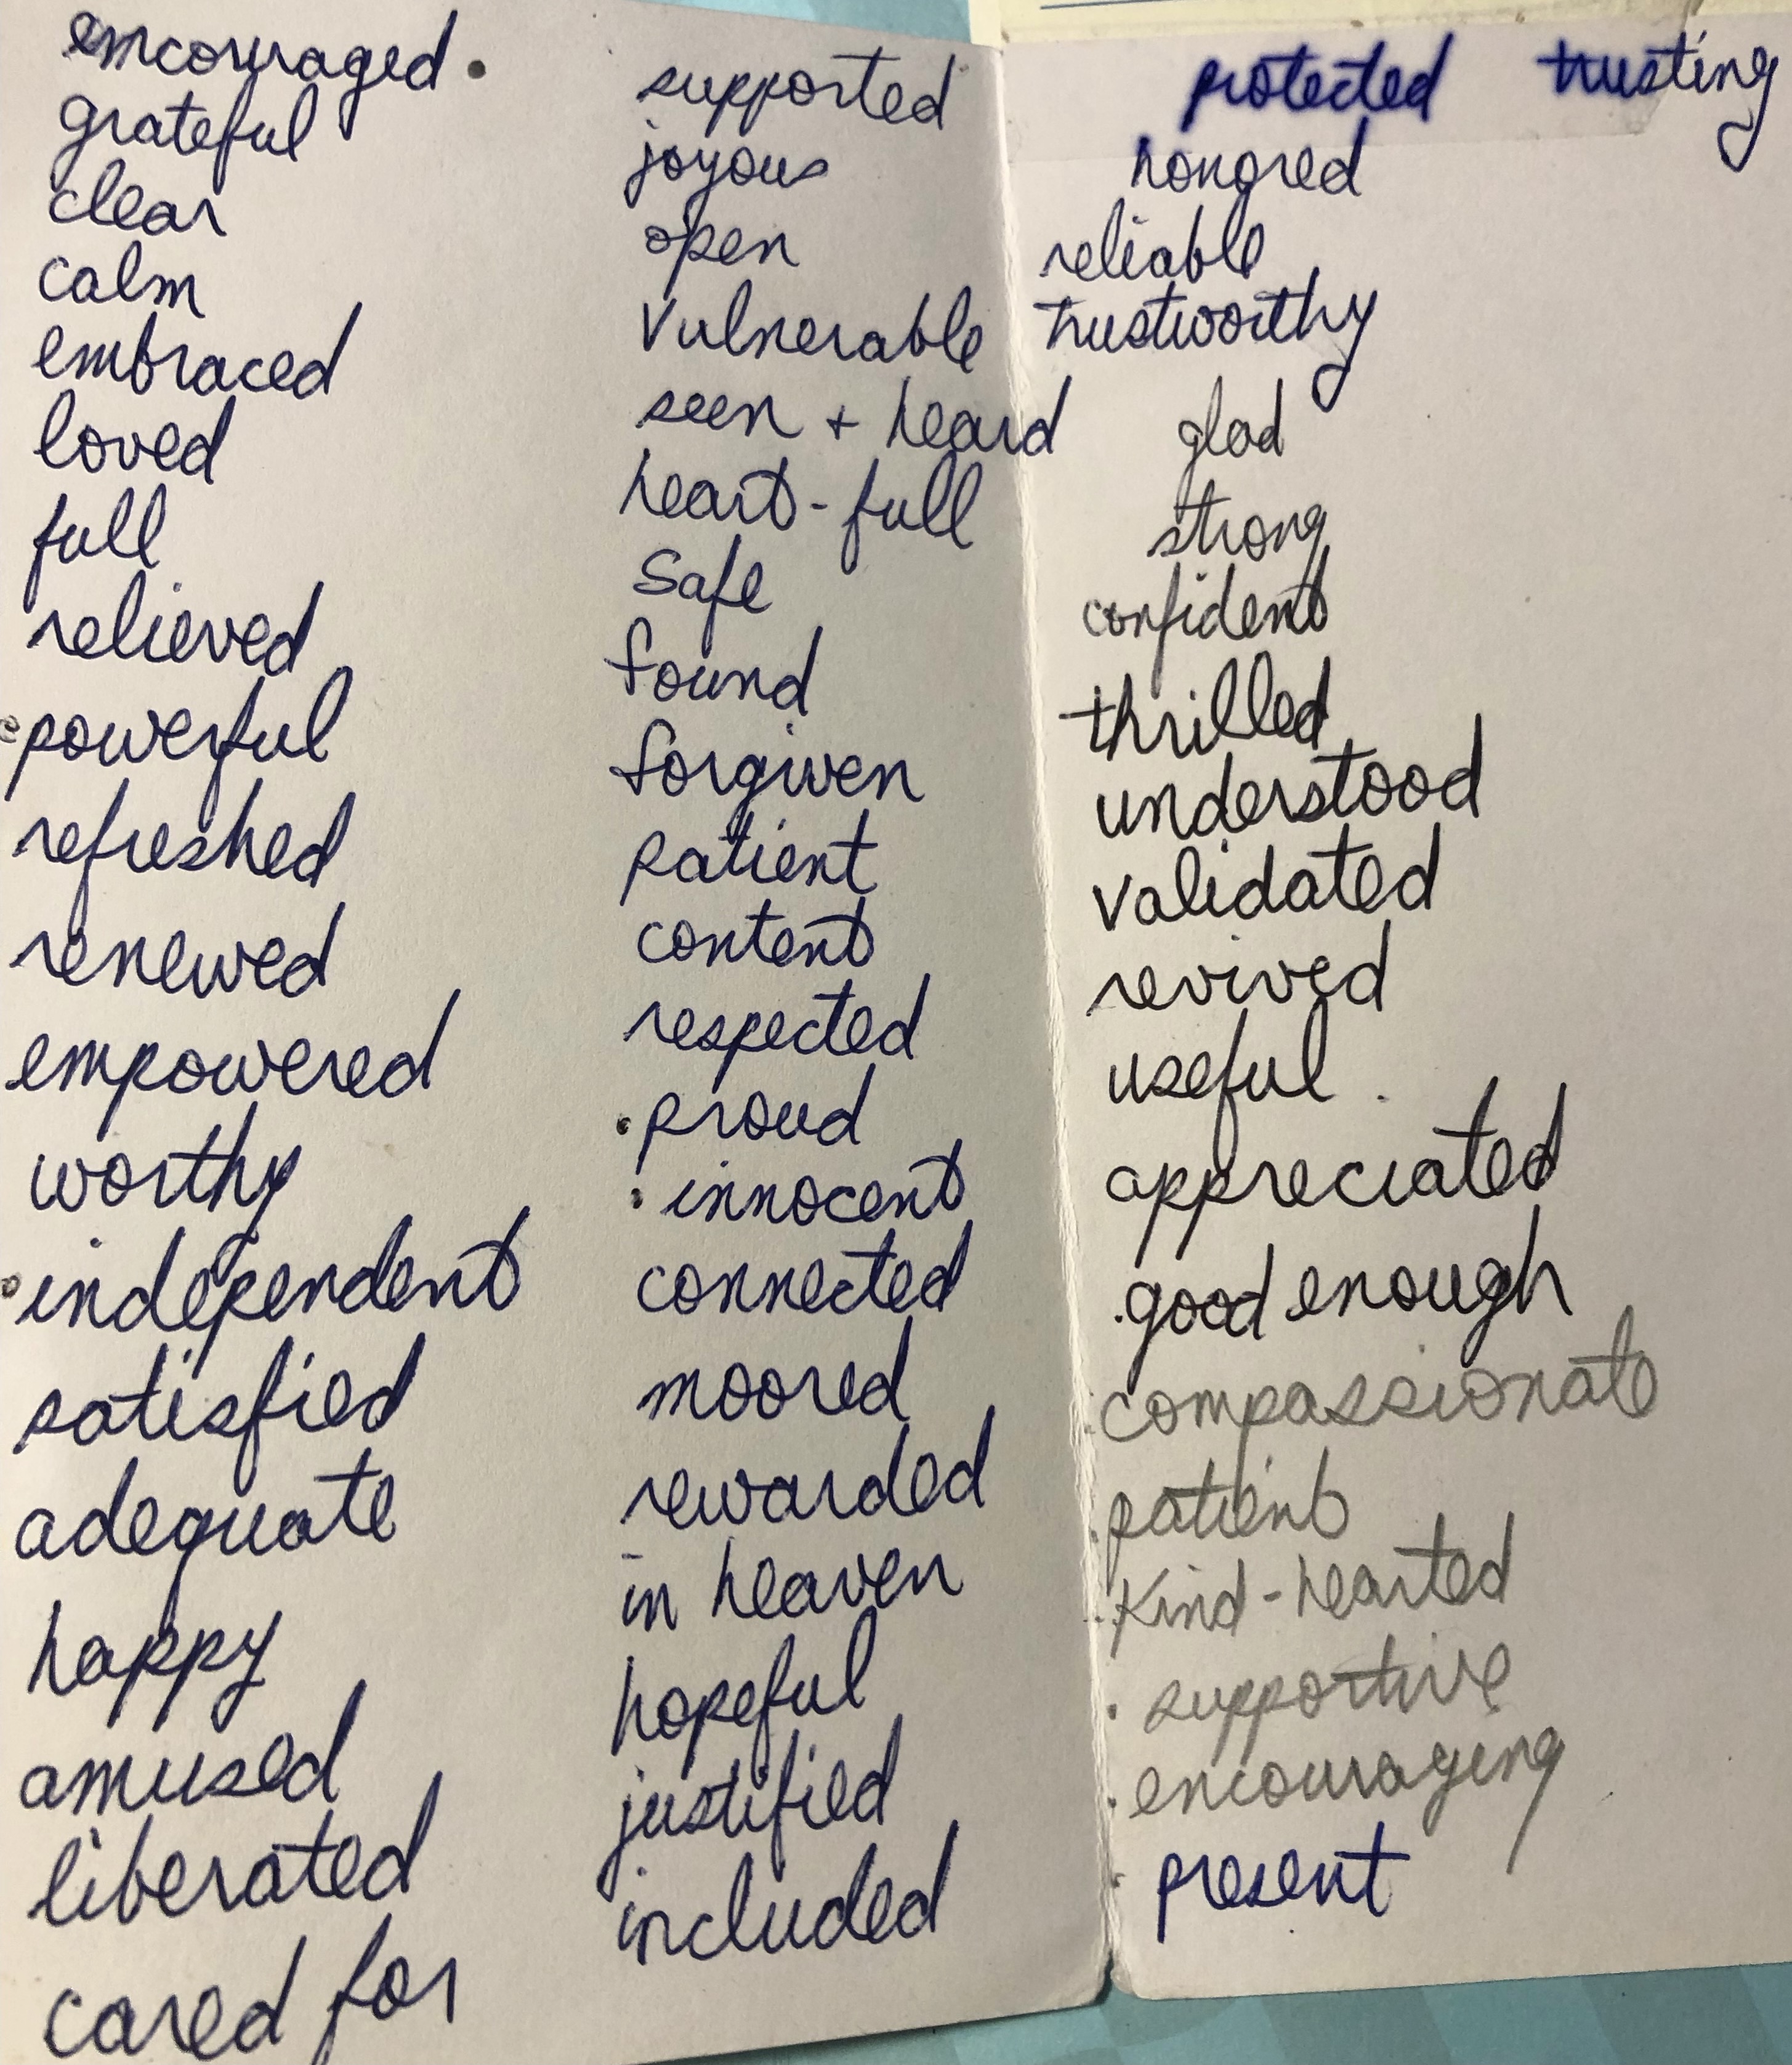 encouraged.
grateful
clear
calm
embraced
loved
full
relieved
powerful
refreshed
renewed
empowered
worthy
independent
satisfied
adequate
happy
amused
liberated
cared for
supported
joyous
open
Vulnerable
seen + heard
heart-full
Safe
found
forgiven
patient
content
respected
· proud
· innocent
connected
moored
rewarded
in heaven
hopeful
justified
included
protected trusting
honored
reliable
trustworthy
glad
strong
confident
thrilled
understood
validated
revived
useful .
appreciated
· good enough
· compassionate
· patient
· Kind-hearted
· supportive
· encouraging
· present